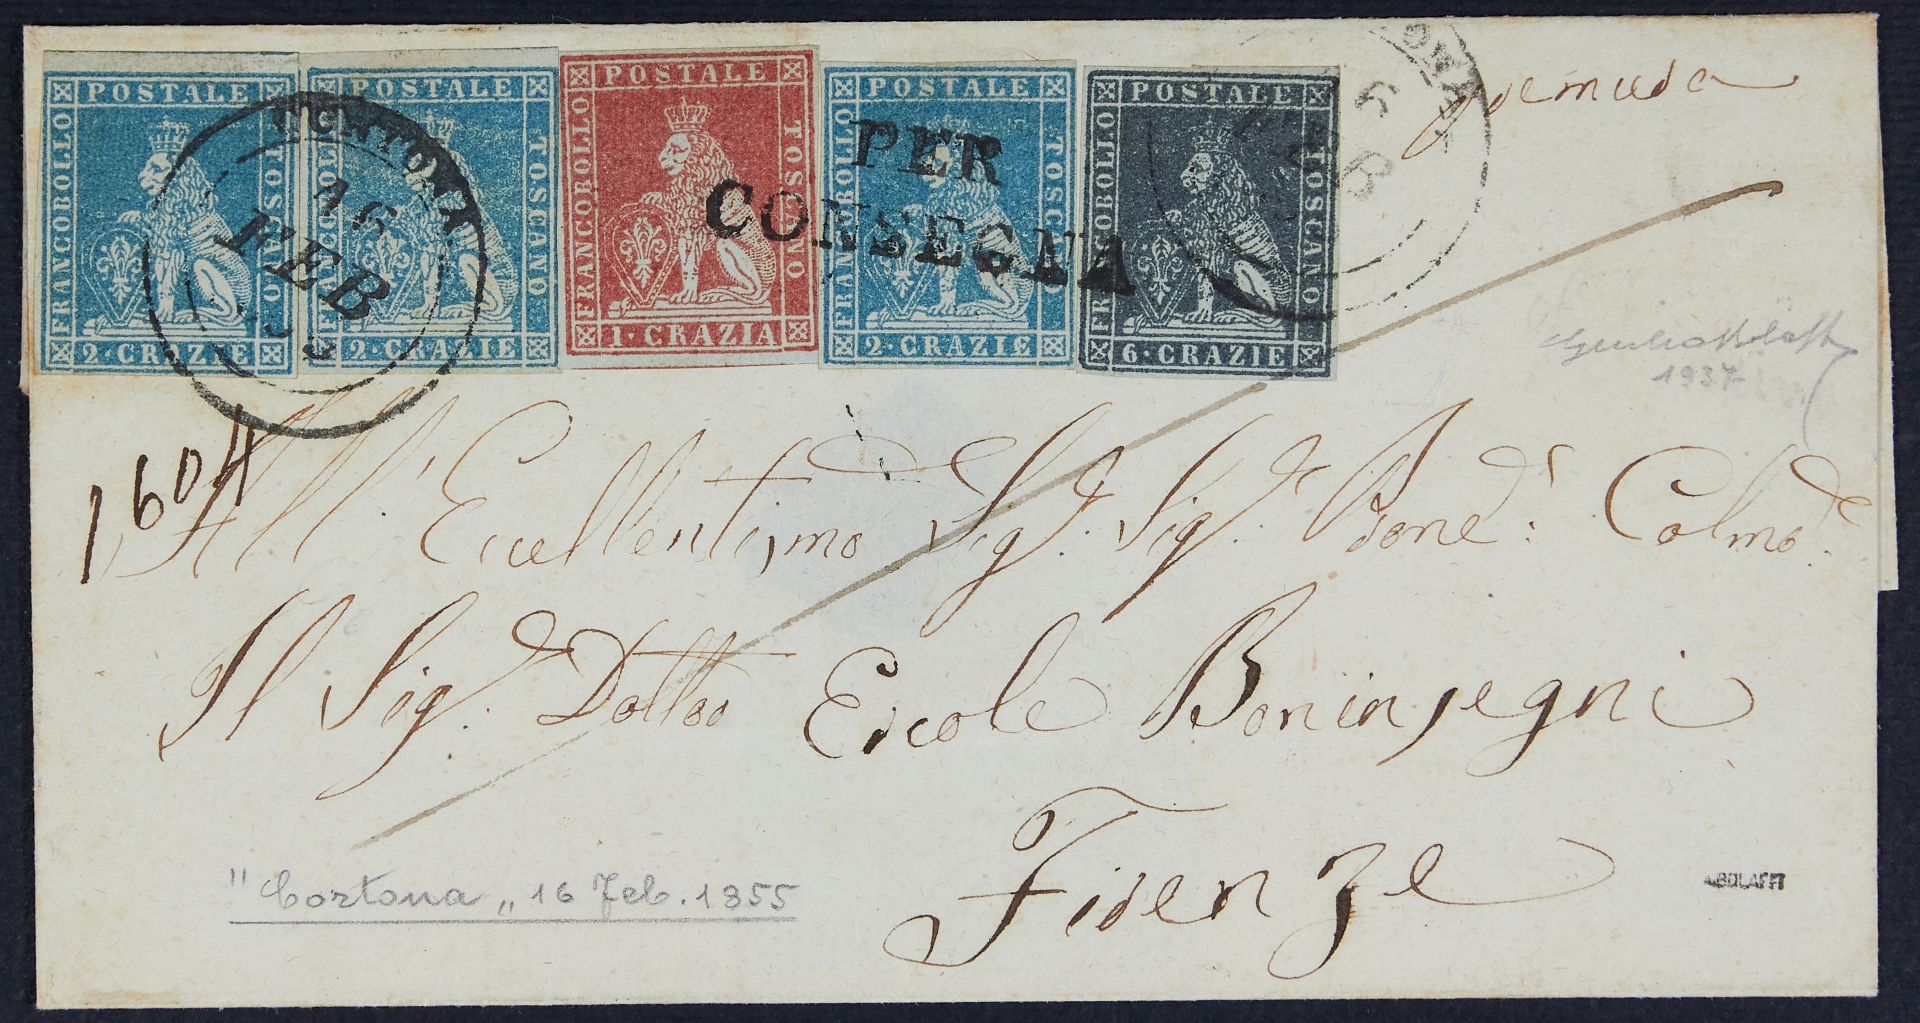 POSTALE
FRANCOBOLLO
TOSCANO
2·CRAZIE
POSTALE
FRANCOBOLLO
TOSCANO
2·CRAZIE
POSTALE
FRANCOBOLLO
TOSCANO
1·CRAZIA
POSTALE
FRANCOBOLLO
TOSCANO
2·CRAZIE
POSTALE
FRANCOBOLLO
TOSCANO
6·CRAZIE
CORTONA
16
FEB
PER
CONSEGNA
6
FEB
premuda
1937
1,604
All' Eccellentismo Sigr. Sigr. Prone: Colmo.
Il Sigr. Dottor Ercole Boninsegni
Firenze
"Cortona„ 16 Feb. 1855
A.BOLAFFI